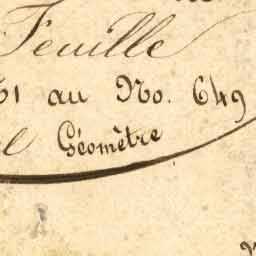 Feuille
51 au No. 649
Géomètre